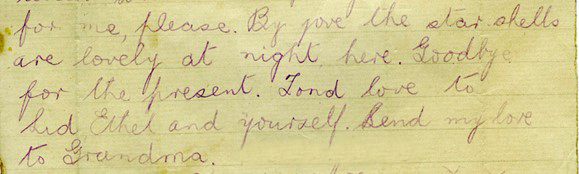 for me, please. By jove the star shells
are lovely at night here. Goodbye
for the present. Fond love to
Sid Ethel and yourself. Send my love
to Grandma.